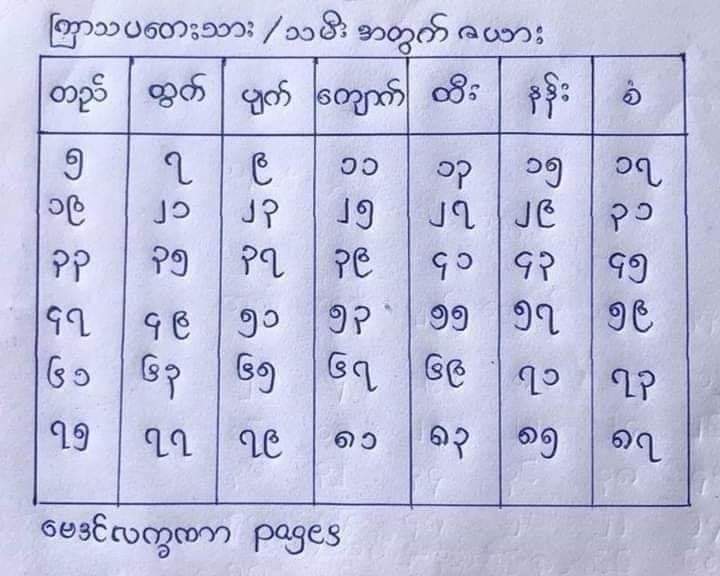 ကြာသပတေးသား / သမီး အတွက် ဇယား
တည် ထွက် ပျက် ကျောက် ထီး နန်း စံ
၅ ၇ ၉ ၁၁ ၁၃ ၁၅ ၁၇
၁၉ ၂၁ ၂၃ ၂၅ ၂၇ ၂၉ ၃၁
၃၃ ၃၅ ၃၇ ၃၉ ၄၁ ၄၃ ၄၅
၄၇ ၄၉ ၅၁ ၅၃ ၅၅ ၅၇ ၅၉
၆၁ ၆၃ ၆၅ ၆၇ ၆၉ ၇၁ ၇၃
၇၅ ၇၇ ၇၉ ၈၁ ၈၃ ၈၅ ၈၇
ဗေဒင်လက္ခဏာ pages